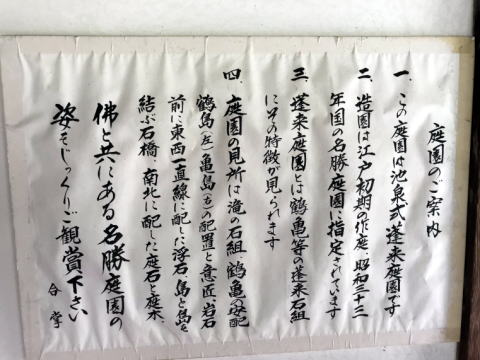 庭園のご案内
一、この庭園は池泉式蓬来庭園です
二、造園は江戸初期の作庭、昭和三十三
年国の名勝庭園に指定されています
三、蓬来庭園とは鶴亀等の蓬来石組
にその特徴が見られます
四、庭園の見所は滝の石組、鶴亀の姿配
鶴島(左)亀島(右)の配置と意匠、岩石
前に東西一直線に配した浮石、島と島を
結ぶ石橋、南北に配した座石と庭木、
佛と共にある名勝庭園の
姿をじっくりご観賞下さい
合掌